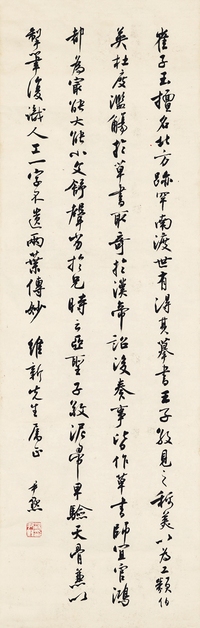 崔子玉擅名北方跡罕南渡世有得其摹書王子敬見之稱美以為工類伯
英杜度濫觴於草書取奇於漢帝詔復奏事皆作草書師宜官鴻
都為最能大能小文舒聲劣於兄時云亞聖子敬泥帚早驗天骨兼以
掣筆復識人工一字不遺兩葉傳妙 維新先生屬正 尹默